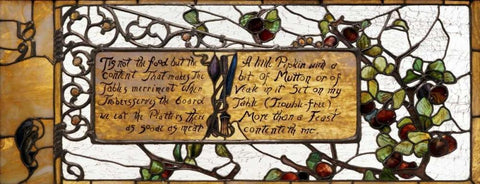 Tis not the food but the
content That makes the
Tables merriment. When
Timber serves the Board
we eat the Platters there
as good as meat
A little Pipkin with a
bit of Mutton or of
Veale in it Set on my
Table (Trouble-free)
More than a Feast
contenteth me.